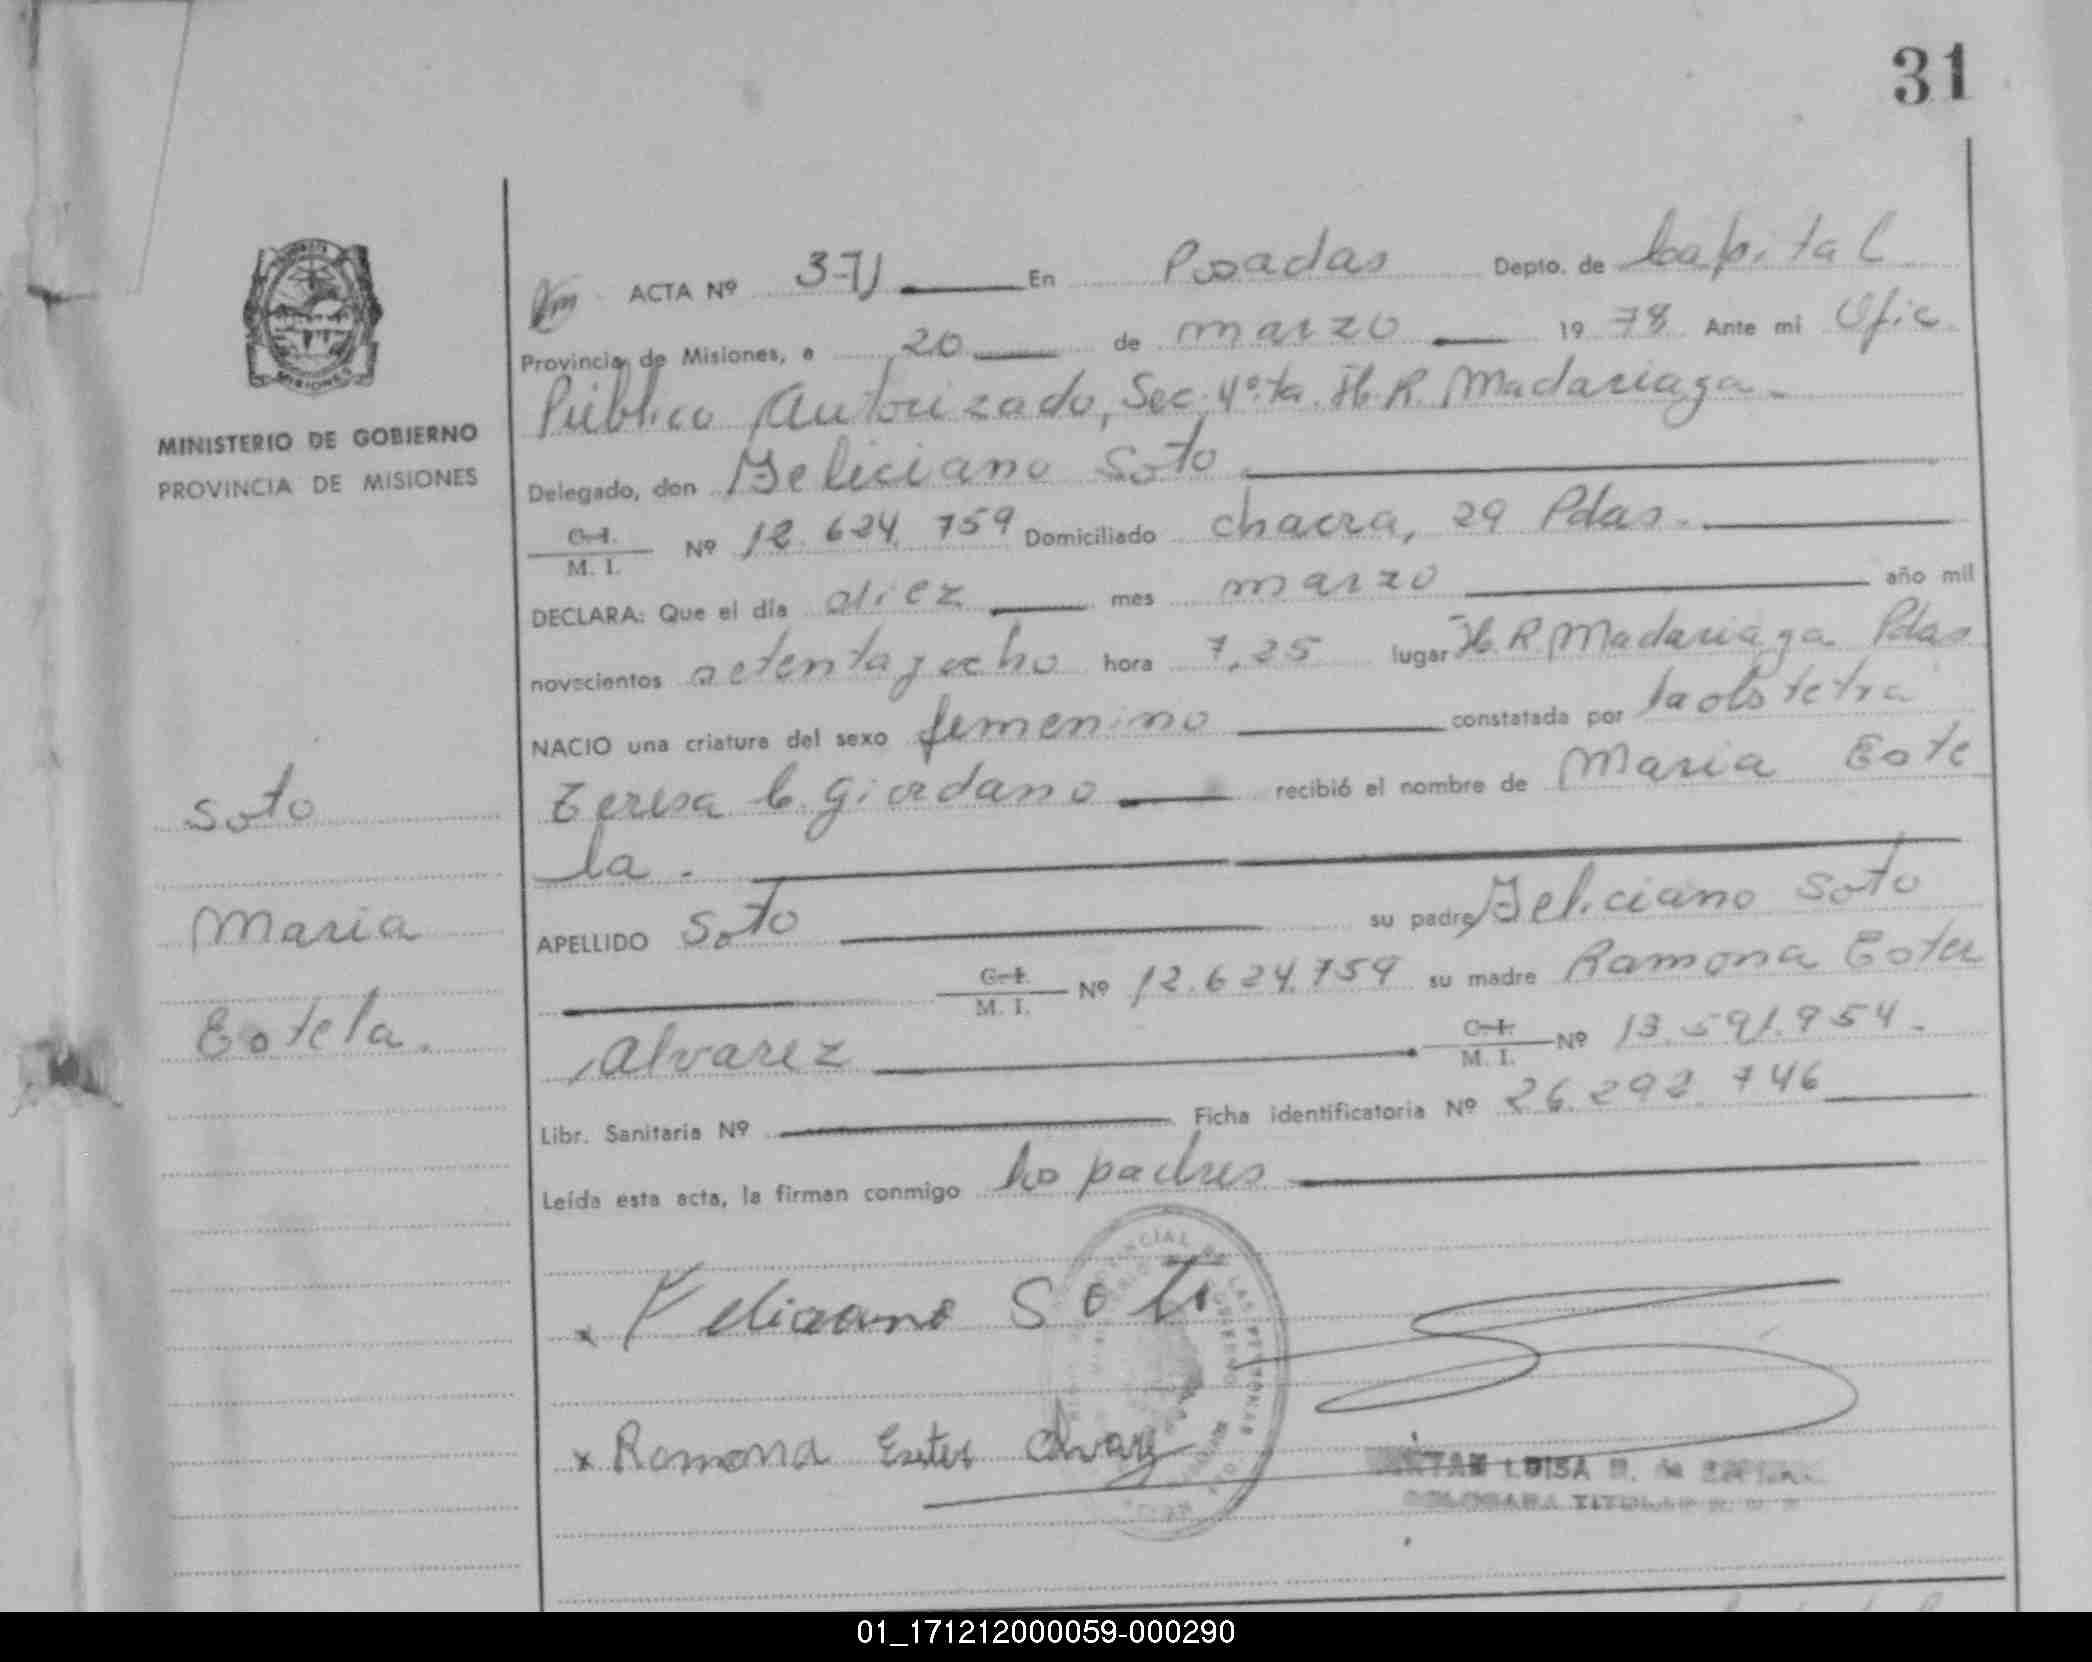 31
ACTA Nº 371 En Posadas Depto. de Capital
Provincia de Misiones, a 20 de marzo 1978 Ante mi Ofic
Público Autorizado, Sec. 4º ta. H. R. Madariaga
Delegado, don Feliciano Soto
C.I. M. I. Nº 12.624.759 Domiciliado chacra, 29 Pdas.
DECLARA: Que el día diez mes marzo año mil
novecientos setenta y ocho hora 7,25 lugar H R Madariaga Pdas
NACIO una criatura del sexo femenino constatada por la obstetra
Teresa C. Giordano recibió el nombre de Maria Este
la.
APELLIDO Soto su padre Feliciano Soto
C.I. M. I. Nº 12.624.759 su madre Ramona Ester
Alvarez C.I. M. I. Nº 13.591.954.
Libr. Sanitaria Nº Ficha identificatoria Nº 26.292.746
Leída esta acta, la firman conmigo los padres
x Feliciano Soto
x Ramona Ester Alvarez
LUISA
TITULAR
MISIONES
MINISTERIO DE GOBIERNO
PROVINCIA DE MISIONES
Soto
Maria
Estela.
01_171212000059-000290